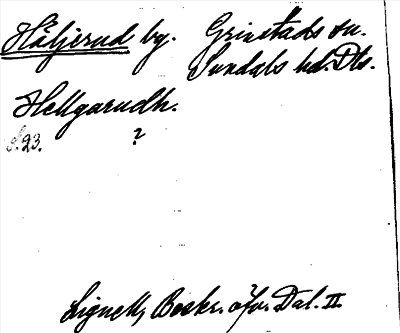 Häljerud by. Grinstads sn.
Sundals hd. Dls.
Hellgarudh.
s. 23. ?
Lignell, Beskr. öfv. Dal. II.